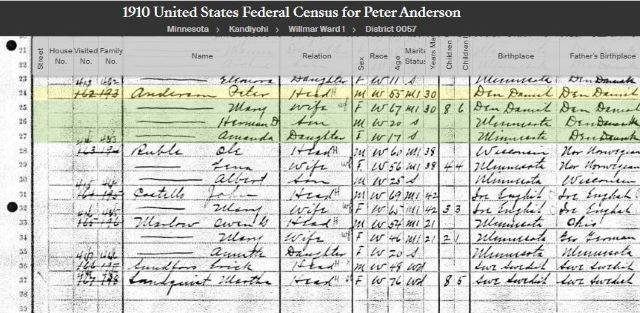 1910 United States Federal Census for Peter Anderson
Minnesota > Kandiyohi > Willmar Ward 1 > District 0057
Street House No. Visited No. Family No. Name Relation Sex Race Age Marital Status Years Children Children Birthplace Father's Birthplace
23 Eleanora Daughter F W 11 S Minnesota Den Danish
24 Anderson Peter Head M W 65 M1 30 Den Danish Den Danish
25 Mary Wife F W 67 M1 30 8 6 Den Danish Den Danish
26 Herman D Son M W 20 S Minnesota Den Danish
27 Amanda Daughter F W 17 S Minnesota Den Danish
28 Ruble Ole Head M W 60 M1 38 Wisconsin Nor Norwegian
29 Lena Wife F W 56 M1 38 4 4 Minnesota Nor Norwegian
30 Albert Son M W 25 S Minnesota Wisconsin
31 Costello John Head M W 69 M1 42 Ire English Ire English
32 Mary Wife F W 65 M1 42 3 3 Ire English Ire English
33 Marlow Owen Head M W 54 M1 21 Minnesota Ohio
34 Mary Wife F W 46 M1 21 2 1 Minnesota Ger German
35 Daughter F W 20 S Minnesota Minnesota
36 Head M W 48 Wd Swe Swedish Swe Swedish
37 Sandquist Martha Head F W 76 Wd 8 5 Swe Swedish Swe Swedish
38